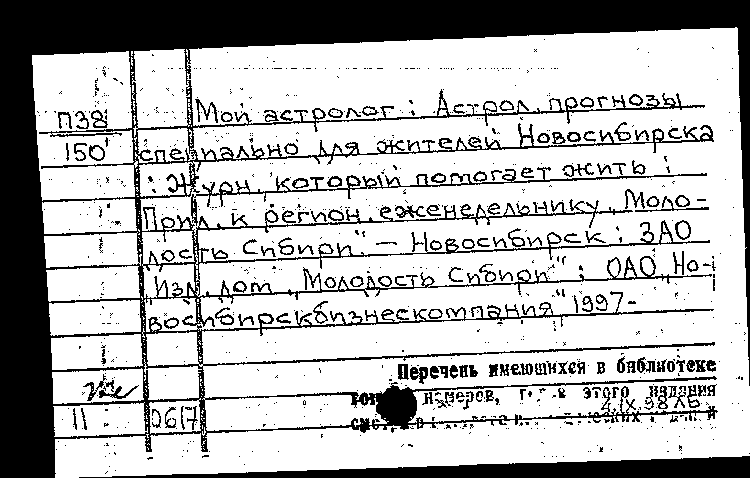 П38 Мой астролог : Астрол. прогнозы
150 специально для жителей Новосибирска
: Журн., который помогает жить :
Прил. к регион. еженедельнику „Моло-
дость Сибири". – Новосибирск : ЗАО
„Изд. дом „Молодость Сибири" ; ОАО „Но-
восибирскбизнескомпания" 1997-
Перечень имеющихся в библиотеке
номеров, этого издания
4.IX.98
11 0617